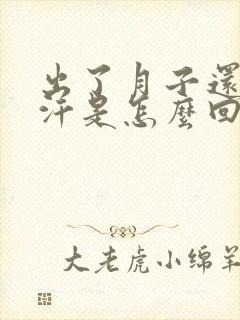 出了月子還
汗是怎麼回
大老虎小绵羊